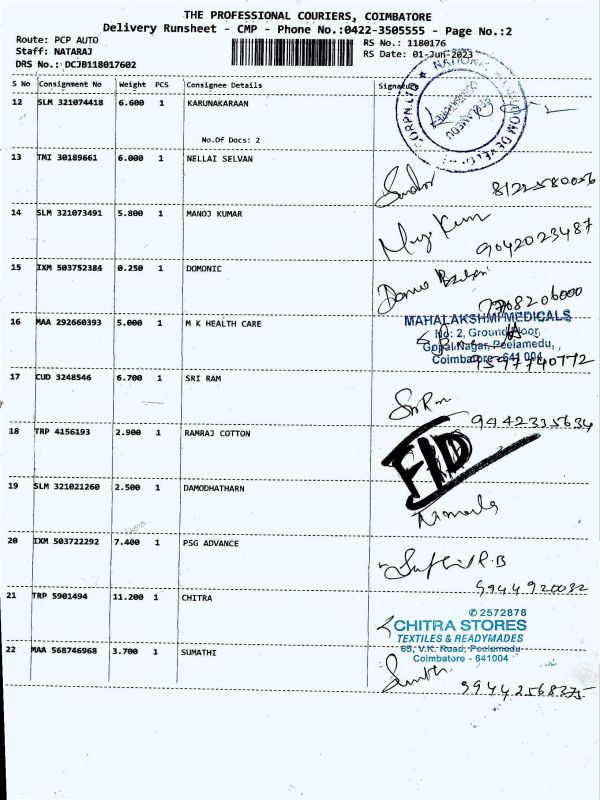 THE PROFESSIONAL COURIERS, COIMBATORE
Delivery Runsheet - CMP - Phone No.:0422-3505555 - Page No.:2
Route: PCP AUTO
RS No.: 1180176
Staff: NATARAJ
RS Date: 01-Jun-2023
DRS No.: DCJB118017602
S No Consignment No Weight PCS Consignee Details Signature
12 SLM 321074418 6.600 1 KARUNAKARAAN
No.Of Docs: 2
PEELAMEDU
13 TMI 30189661 6.000 1 NELLAI SELVAN
8122580056
14 SLM 321073491 5.800 1 MANOJ KUMAR
9042023487
15 IXM 503752384 0.250 1 DOMONIC
7708206000
16 MAA 292660393 5.000 1 M K HEALTH CARE
MAHALAKSHMI MEDICALS
No: 2, Ground Floor,
Gopal Nagar, Peelamedu,
Coimbatore - 641 004.
9597740772
17 CUD 3248546 6.700 1 SRI RAM
Sri Ram
9442335634
18 TRP 4156193 2.900 1 RAMRAJ COTTON
19 SLM 321021260 2.500 1 DAMODHATHARN
20 IXM 503722292 7.400 1 PSG ADVANCE
9944920032
21 TRP 5901494 11.200 1 CHITRA
✆ 2572878
CHITRA STORES
TEXTILES & READYMADES
65, V.K. Road, Peelamedu
Coimbatore - 641004
22 MAA 568746968 3.700 1 SUMATHI
99442568375